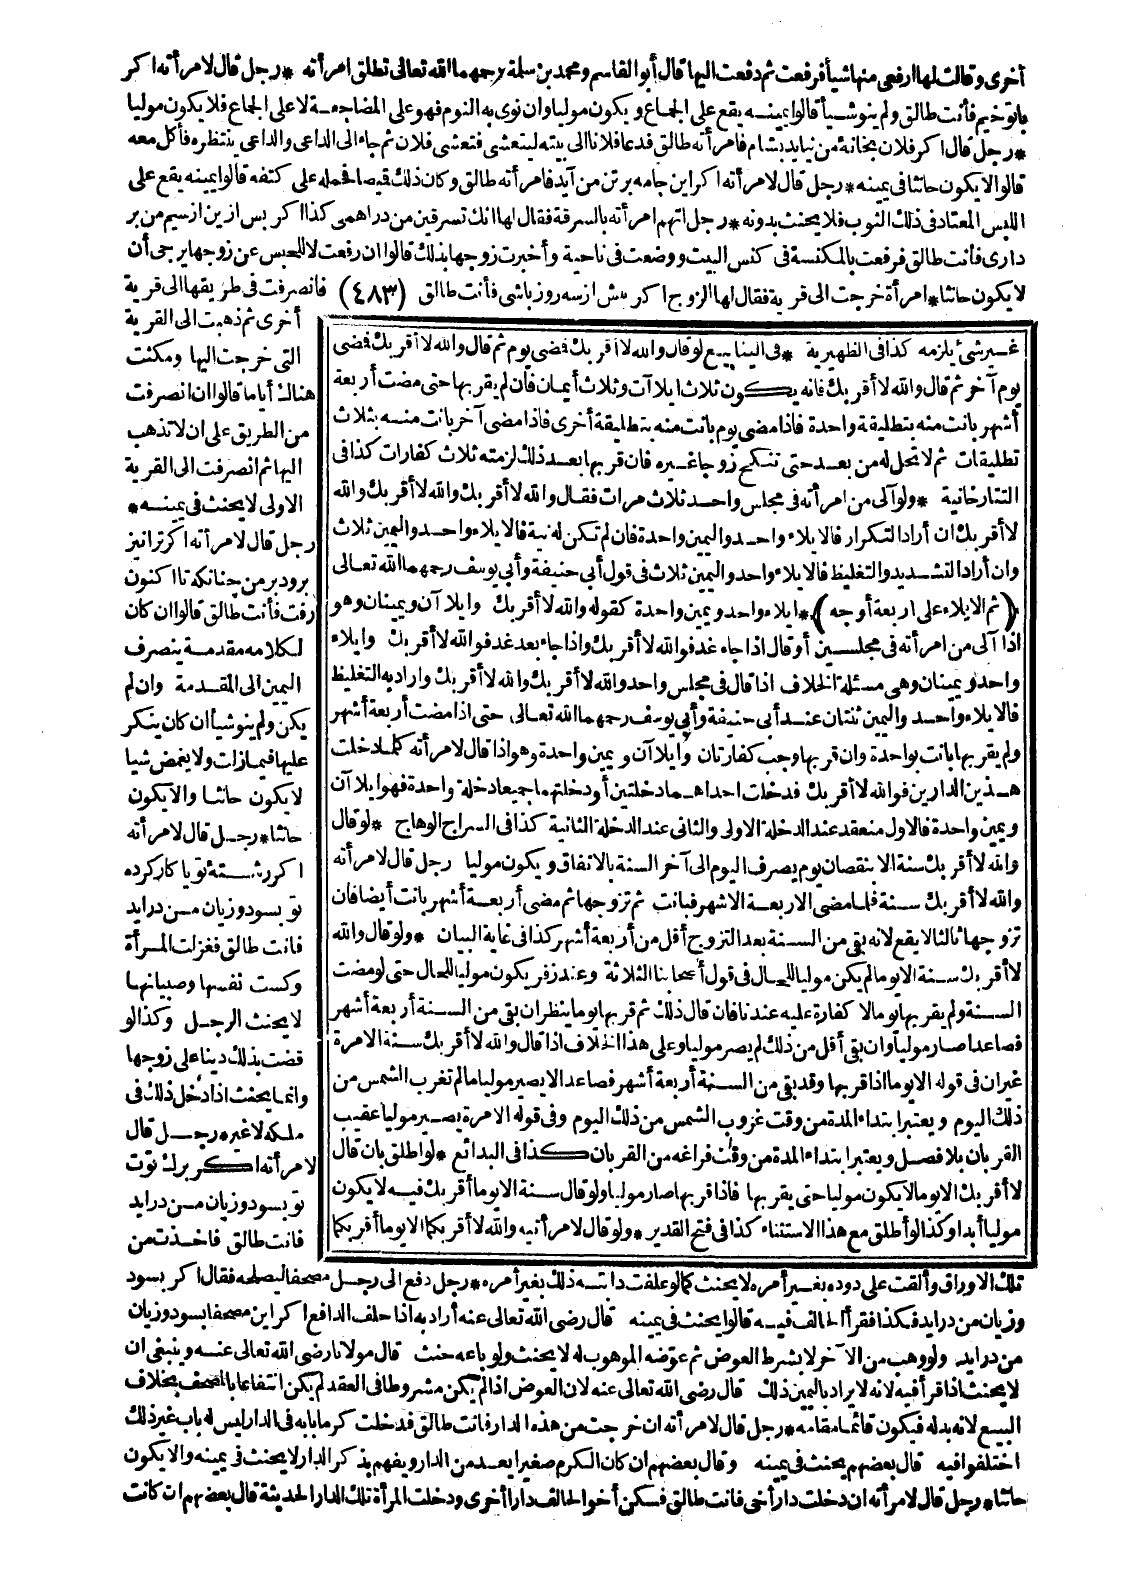 أخرى وقالت لها ارفعي منها شيأ فرفعت ثم دفعت اليها قال أبو القاسم ومحمد بن سلمة رحمهما الله تعالى تطلق امرأته * رجل قال لامرأته اكر
باتو خيم فأنت طالق ولم ينو شيأ قالوا يمينه يقع على الجماع ويكون موليا وان نوى به النوم فهو على المضاجعة لا على الجماع فلا يكون موليا
* رجل قال اكر فلان بخانهٔ من نيايد بشام فامرأته طالق فدعا فلانا الى بيته ليتعشى فتعشى فلان ثم جاء الى الداعى والداعى ينتظره فأكل معه
قالوا لا يكون حانثا فى يمينه * رجل قال لامرأته اكر اين جامه برتن من آيد فامرأته طالق وكان ذلك قيصا فحمله على كتفه قالوا يمينه يقع على
اللبس المعتاد فى ذلك الثوب فلا يحنث بدونه * رجل اتهم امرأته بالسرقة فقال لها انك تسرقين من دراهمى كذا اكر بس ازين ازسيم من بر
دارى فأنت طالق فرفعت بالمكنسة فى كنس البيت ووضعت فى ناحية وأخبرت زوجها بذلك قالوا ان رفعت لا للحبس عن زوجها يرجى أن
لا يكون حانثا * امرأة خرجت الى قرية فقال لها الزوج اكر بش از سه روز باشى فأنت طالق (٤٨٣) فانصرفت فى طريقها الى قرية
أخرى ثم ذهبت الى القرية
التى خرجت اليها ومكثت
هناك أياما قالوا ان انصرفت
من الطريق على ان لا تذهب
اليها ثم انصرفت الى القرية
الاولى لا يحنث فى يمينه *
رجل قال لامرأته اكر ترا نيز
برود بر من چنانكه تا اكنون
رفت فأنت طالق قالوا ان كان
لكلامه مقدمة ينصرف
اليمين الى المقدمة وان لم
يكن ولم ينو شيأ ان كان ينكر
عليها فيما زات ولا يغمض شيا
لا يكون حانثا والا يكون
حانثا * رجل قال لامرأته
اكر رشتهٔ تو يا كار كرده
تو بسود وزيان من درايد
فانت طالق فغزلت المرأة
وكست نفسها وصبيانها
لا يحنث الرجل وكذا لو
قضت بذلك دينا على زوجها
وانما يحنث اذا دخل ذلك فى
ملكه لا غيره رجل قال
لامرأته اكر برك توت
تو بسود وزيان من درايد
فانت طالق فاخذت من
غير شئ يلزمه كذا فى الظهيرية * فى الينابيع لو قال والله لا أقربك فمضى يوم ثم قال والله لا أقربك فمضى
يوم آخر ثم قال والله لا أقربك فانه يكون ثلاث ايلاآت وثلاث أيمان فان لم يقربها حتى مضت أربعة
أشهر بانت منه بتطليقة واحدة فاذا مضى يوم بانت منه بتطليقة أخرى فاذا مضى آخر بانت منه بثلاث
تطليقات ثم لا تحل له من بعد حتى تنكح زوجا غيره فان قربها بعد ذلك لزمته ثلاث كفارات كذا فى
التتارخانية * ولو آلى من امرأته فى مجلس واحد ثلاث مرات فقال والله لا أقربك والله لا أقربك والله
لا أقربك ان أراد التكرار فالايلاء واحد واليمين واحدة فان لم تكن له نية فالايلاء واحد واليمين ثلاث
وان أراد التشديد والتغليظ فالايلاء واحد واليمين ثلاث فى قول أبى حنيفة وأبى يوسف رحمهما الله تعالى
(ثم الايلاء على اربعة أوجه) * ايلاء واحد ويمين واحدة كقوله والله لا أقربك وايلاآن ويمينان وهو
اذا آلى من امرأته فى مجلسين أو قال اذا جاء غد فوالله لا أقربك واذا جاء بعد غد فوالله لا أقربك وايلاء
واحد ويمينان وهى مسئلة الخلاف اذا قال فى مجلس واحد والله لا أقربك والله لا أقربك واراد به التغليظ
فالايلاء واحد واليمين ثنتان عند أبى حنيفة وأبى يوسف رحمهما الله تعالى حتى اذا مضت أربعة أشهر
ولم يقربها بانت بواحدة وان قربها وجب كفارتان وايلاآن ويمين واحدة وهو اذا قال لامرأته كلما دخلت
هذين الدارين فوالله لا أقربك فدخلت احداهما دخلتين أو دخلتهما جميعا دخلة واحدة فهو ايلاآن
ويمين واحدة فالاول منعقد عند الدخلة الاولى والثانى عند الدخلة الثانية كذا فى السراج الوهاج * لو قال
والله لا أقربك سنة الا بنقصان يوم يصرف اليوم الى آخر السنة بالاتفاق ويكون موليا رجل قال لامرأته
والله لا أقربك سنة فلما مضى الاربعة الاشهر فبانت ثم تزوجها ثم مضى أربعة أشهر بانت أيضا فان
تزوجها ثالثا لا يقع لانه بقى من السنة بعد التزوج أقل من أربعة أشهر كذا فى غاية البيان * ولو قال والله
لا أقربك سنة الا يوما لم يكن موليا للحال فى قول أصحابنا الثلاثة وعند زفر يكون موليا للحال حتى لو مضت
السنة ولم يقربها يوما لا كفارة عليه عندنا فان قال ذلك ثم قربها يوما ينظر ان بقى من السنة أربعة أشهر
فصاعدا صار موليا وان بقى أقل من ذلك لم يصر موليا وعلى هذا الخلاف اذا قال والله لا أقربك سنة الا مرة
غير ان فى قوله الا يوما اذا قربها وقد بقى من السنة أربعة أشهر فصاعدا لا يصير موليا ما لم تغرب الشمس من
ذلك اليوم ويعتبر ابتداء المدة من وقت غروب الشمس من ذلك اليوم وفى قوله الا مرة يصير موليا عقيب
القربان بلا فصل ويعتبر ابتداء المدة من وقت فراغه من القربان كذا فى البدائع * لو اطلق بان قال
لا أقربك الا يوما لا يكون موليا حتى يقربها فاذا قربها صار موليا ولو قال سنة الا يوما أقربك فيه لا يكون
موليا أبدا وكذا لو أطلق مع هذا الاستثناء كذا فى فتح القدير * ولو قال لامرأتيه والله لا أقربكما الا يوما أقربكما
تلك الاوراق وألقت على دوده بغير أمره لا يحنث كما لو علفت دابته ذلك بغير أمره * رجل دفع الى رجل مصحفا ليصلحه فقال اكر بسود
وزيان من درايد فكذا فقرأ الحالف فيه قالوا يحنث فى يمينه قال رضى الله تعالى عنه أراد به اذا حلف الدافع اكر اين مصحفا بسود وزيان
من درايد ولو وهب من الآخر لا بشرط العوض ثم عوّضه الموهوب له لا يحنث ولو باعه حنث قال مولانا رضى الله تعالى عنه وينبغى ان
لا يحنث اذا قرأ فيه لانه لا يراد باليمين ذلك قال رضى الله تعالى عنه لان العوض اذا لم يكن مشروطا فى العقد لم يكن انتفاعا بالمصحف بخلاف
البيع لانه بدله فيكون قائما مقامه * رجل قال لامرأته ان خرجت من هذه الدار فانت طالق فدخلت كرما بابه فى الدار ليس له باب غير ذلك
اختلفوا فيه قال بعضهم يحنث فى يمينه وقال بعضهم ان كان الكرم صغيرا يعد من الدار ويفهم بذكر الدار لا يحنث فى يمينه والا يكون
حانثا * رجل قال لامرأته ان دخلت دار أخى فانت طالق فسكن أخو الحالف دارا أخرى ودخلت المرأة تلك الدار الحديثة قال بعضهم ان كانت